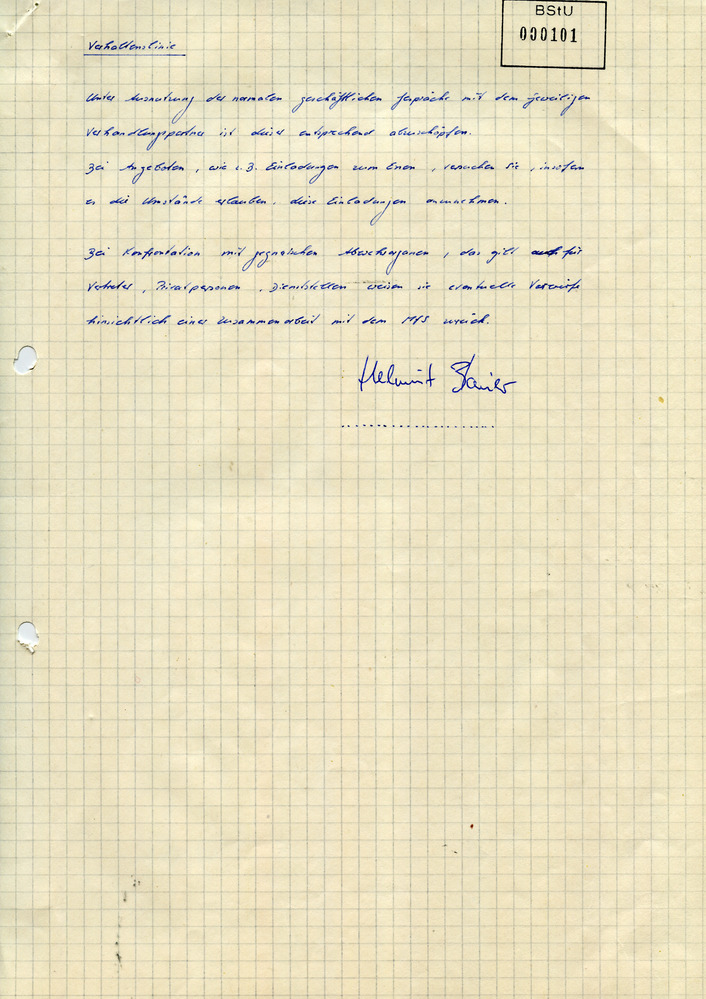 BStU
000101
Verhaltenslinie
Unter Ausnutzung der normalen geschäftlichen Gespräche mit dem jeweiligen
Verhandlungspartner ist dieser entsprechend abzuschöpfen.
Bei Angeboten, wie z.B. Einladungen zum Essen, versuchen Sie, insofern
es die Umstände erlauben, diese Einladungen anzunehmen.
Bei Konfrontation mit gegnerischen Abwehrorganen, das gilt auch für
Vertreter, Privatpersonen, Dienststellen weisen sie eventuelle Vorwürfe
hinsichtlich einer Zusammenarbeit mit dem MfS zurück.
Helmut